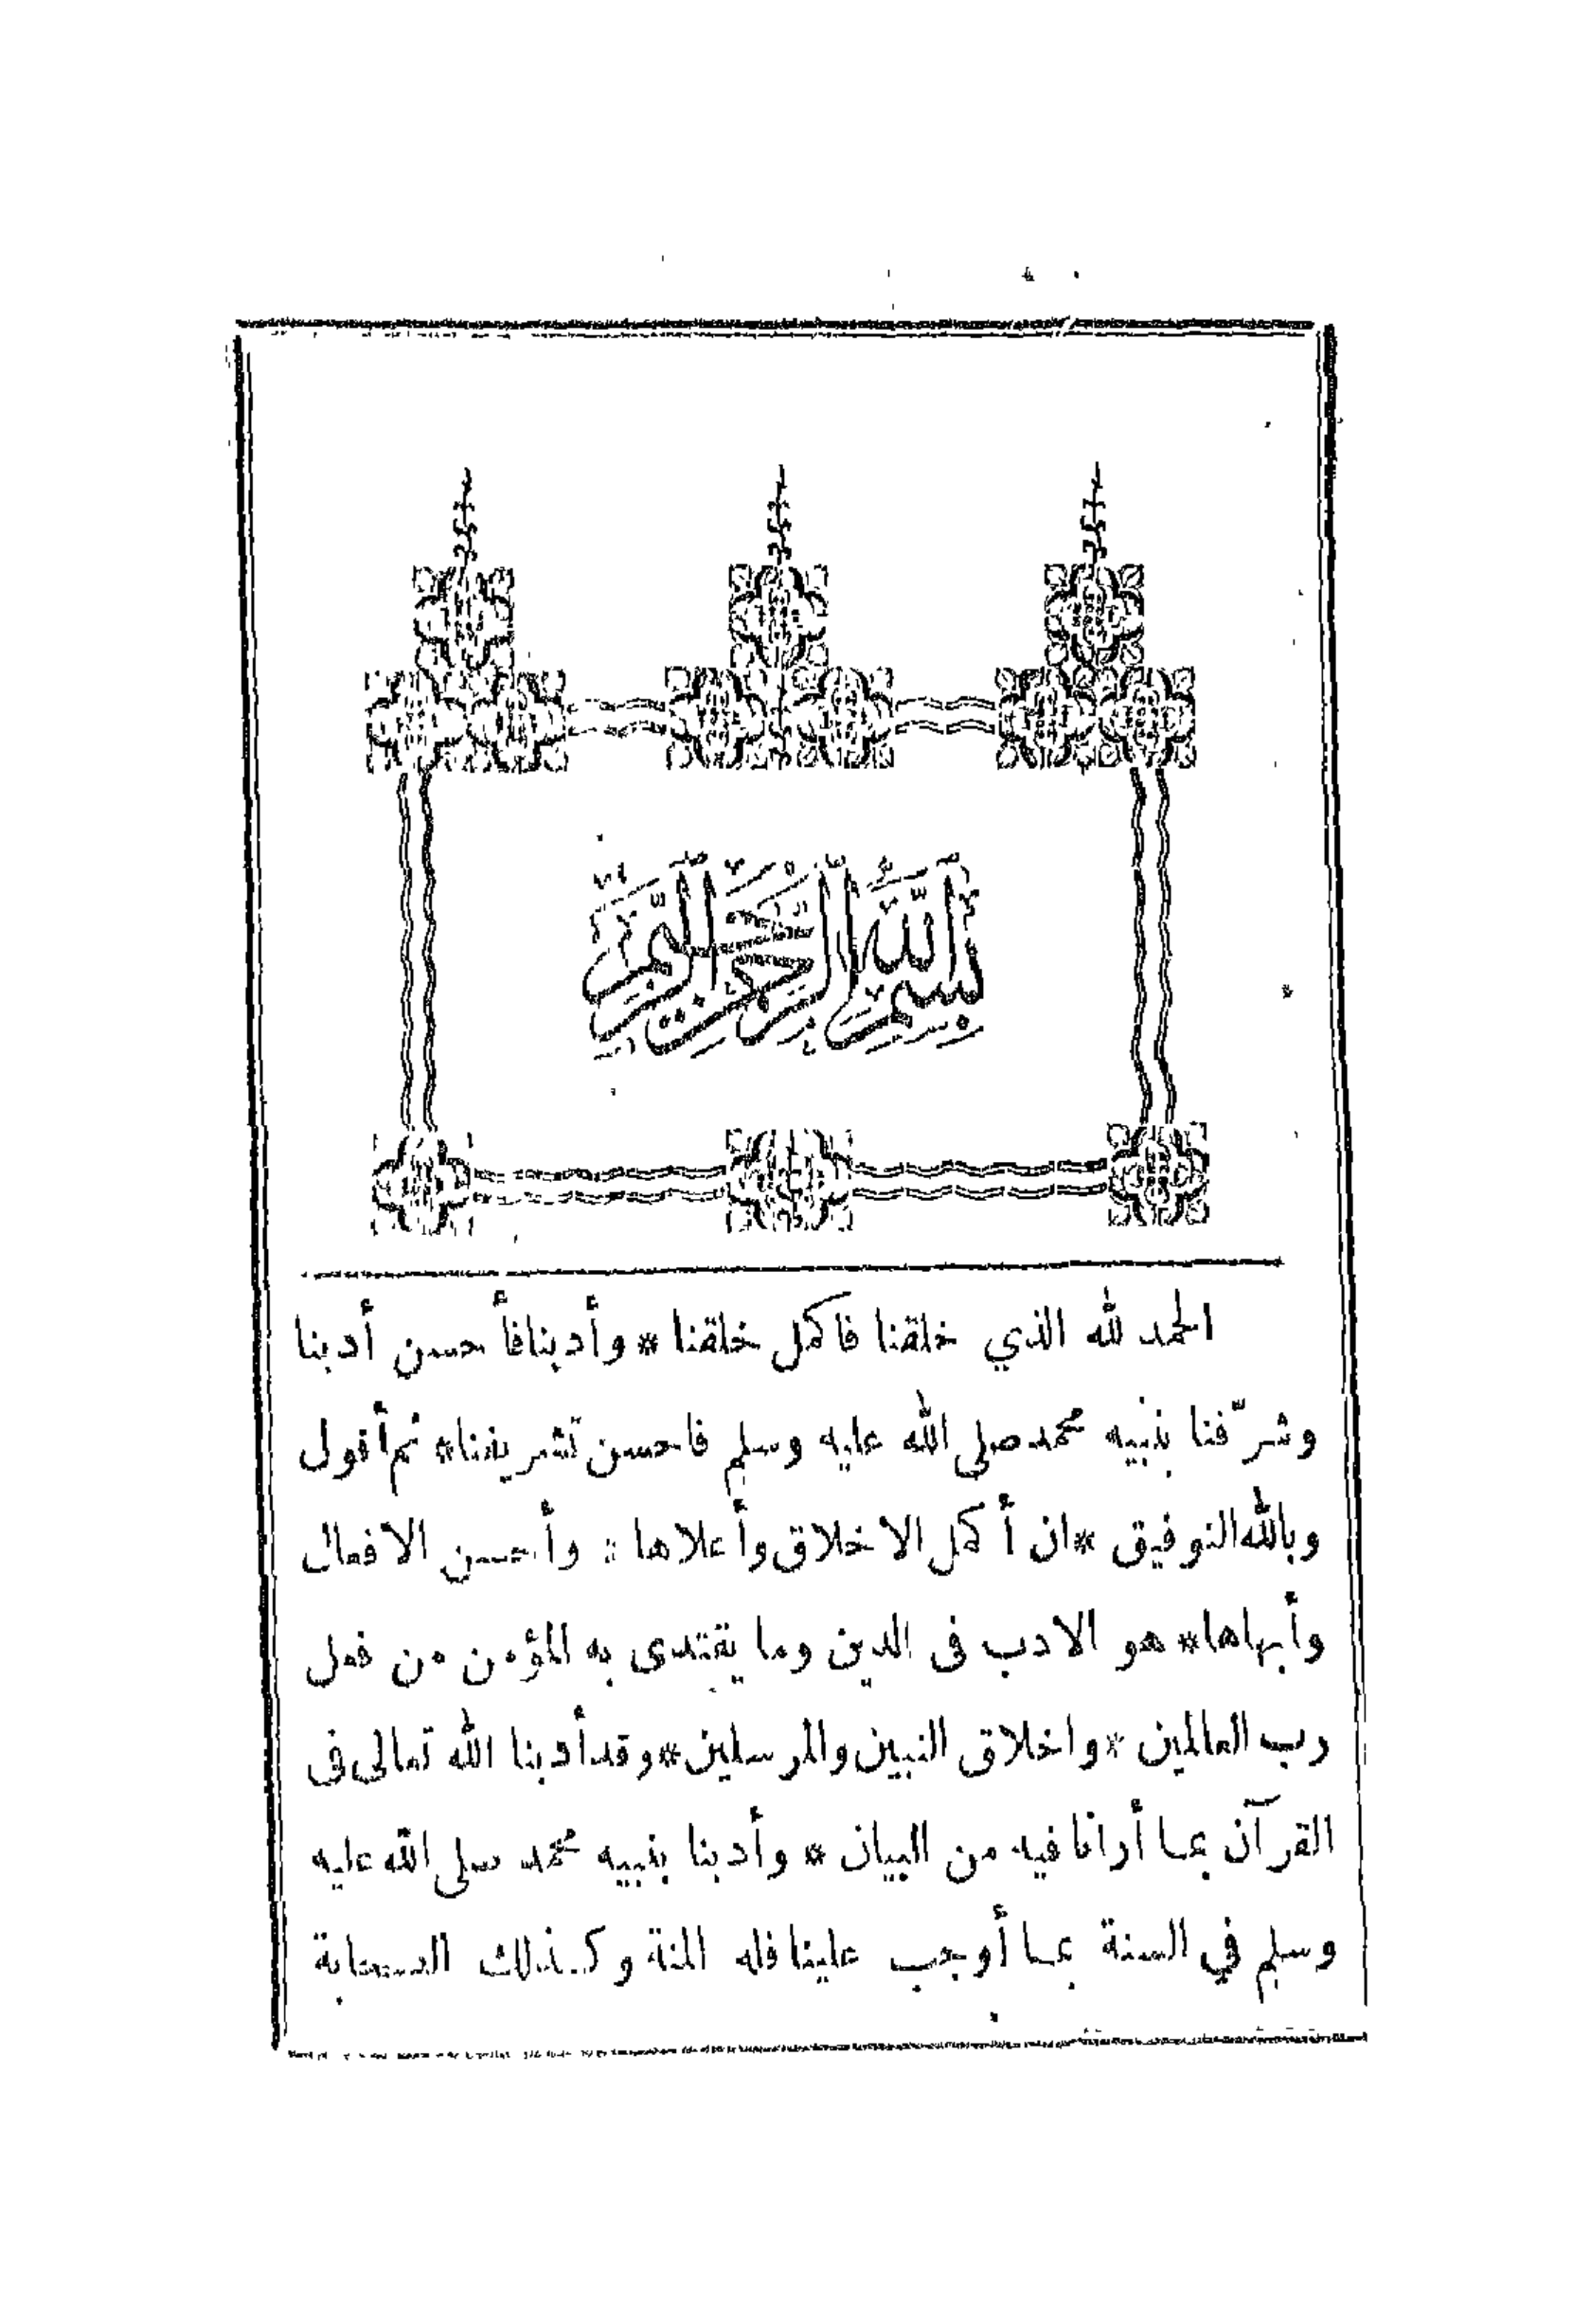 بسم الله الرحمن الرحيم
الحمد لله الذي خلقنا فاكمل خلقنا * وأدبنا فأحسن أدبنا
وشرّفنا بنبيه محمد صلى الله عليه وسلم فاحسن تشريفنا * ثم أقول
وبالله التوفيق * ان أكمل الاخلاق وأعلاها * وأحسن الافعال
وأبهاها * هو الادب فى الدين وما يقتدى به المؤمن من فعل
رب العالمين * واخلاق النبيين والمرسلين * وقد أدبنا الله تعالى فى
القرآن بما أرانا فيه من البيان * وأدبنا بنبيه محمد صلى الله عليه
وسلم في السنة بما أوجب علينا فله المنة وكذلك الصحابة